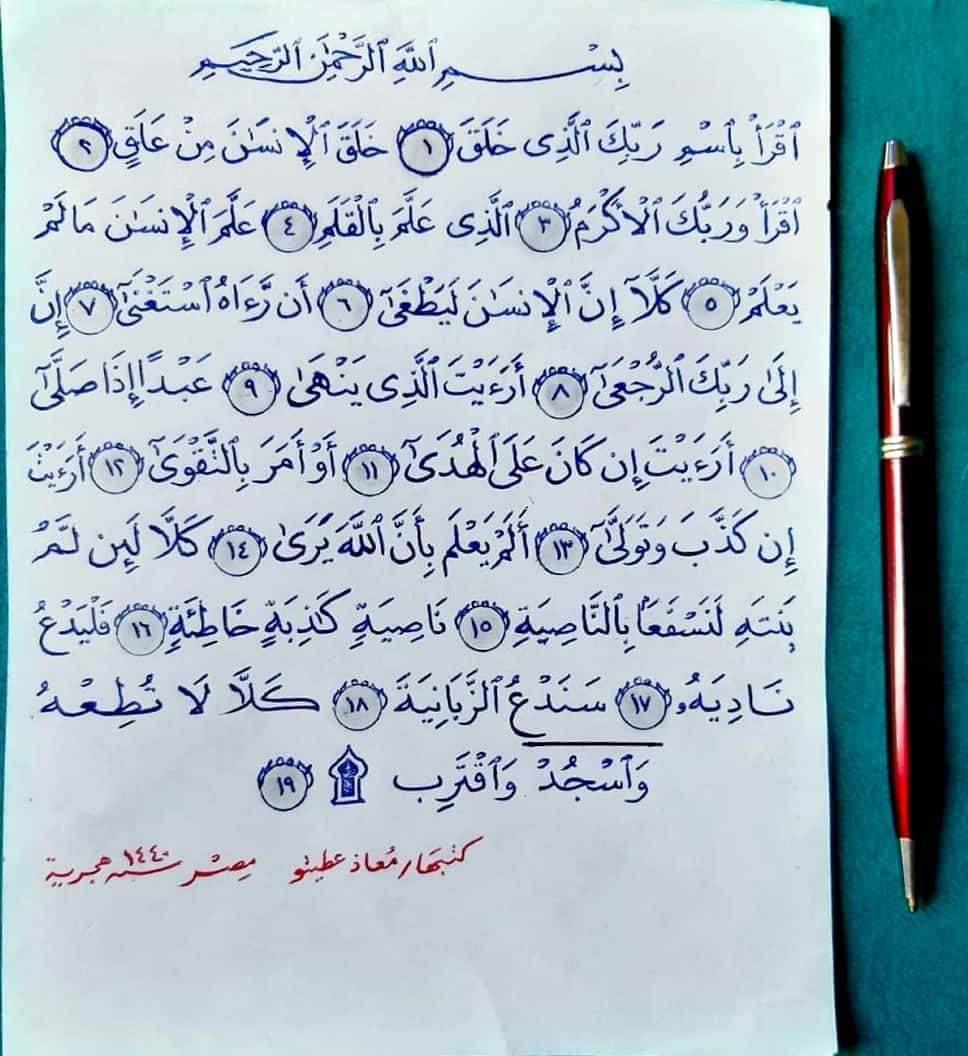 بِسْمِ ٱللَّهِ ٱلرَّحْمَٰنِ ٱلرَّحِيمِ
ٱقْرَأْ بِٱسْمِ رَبِّكَ ٱلَّذِى خَلَقَ ١ خَلَقَ ٱلْإِنسَٰنَ مِنْ عَلَقٍ ٢
ٱقْرَأْ وَرَبُّكَ ٱلْأَكْرَمُ ٣ ٱلَّذِى عَلَّمَ بِٱلْقَلَمِ ٤ عَلَّمَ ٱلْإِنسَٰنَ مَا لَمْ
يَعْلَمْ ٥ كَلَّآ إِنَّ ٱلْإِنسَٰنَ لَيَطْغَىٰٓ ٦ أَن رَّءَاهُ ٱسْتَغْنَىٰٓ ٧ إِنَّ
إِلَىٰ رَبِّكَ ٱلرُّجْعَىٰٓ ٨ أَرَءَيْتَ ٱلَّذِى يَنْهَىٰ ٩ عَبْدًا إِذَا صَلَّىٰٓ
١٠ أَرَءَيْتَ إِن كَانَ عَلَى ٱلْهُدَىٰٓ ١١ أَوْ أَمَرَ بِٱلتَّقْوَىٰٓ ١٢ أَرَءَيْتَ
إِن كَذَّبَ وَتَوَلَّىٰٓ ١٣ أَلَمْ يَعْلَم بِأَنَّ ٱللَّهَ يَرَىٰ ١٤ كَلَّا لَئِن لَّمْ
يَنتَهِ لَنَسْفَعًۢا بِٱلنَّاصِيَةِ ١٥ نَاصِيَةٍ كَٰذِبَةٍ خَاطِئَةٍ ١٦ فَلْيَدْعُ
نَادِيَهُۥ ١٧ سَنَدْعُ ٱلزَّبَانِيَةَ ١٨ كَلَّا لَا تُطِعْهُ
وَٱسْجُدْ وَٱقْتَرِب ۩ ١٩
كتبها/ مُعاذ عطيتو مصر سنة ١٤٤٠ هجرية